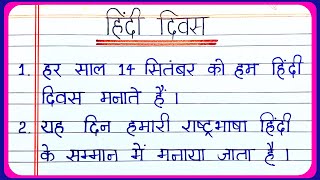 हिंदी दिवस
1. हर साल 14 सितंबर को हम हिंदी
दिवस मनाते हैं ।
2. यह दिन हमारी राष्ट्रभाषा हिंदी
के सम्मान में मनाया जाता है ।